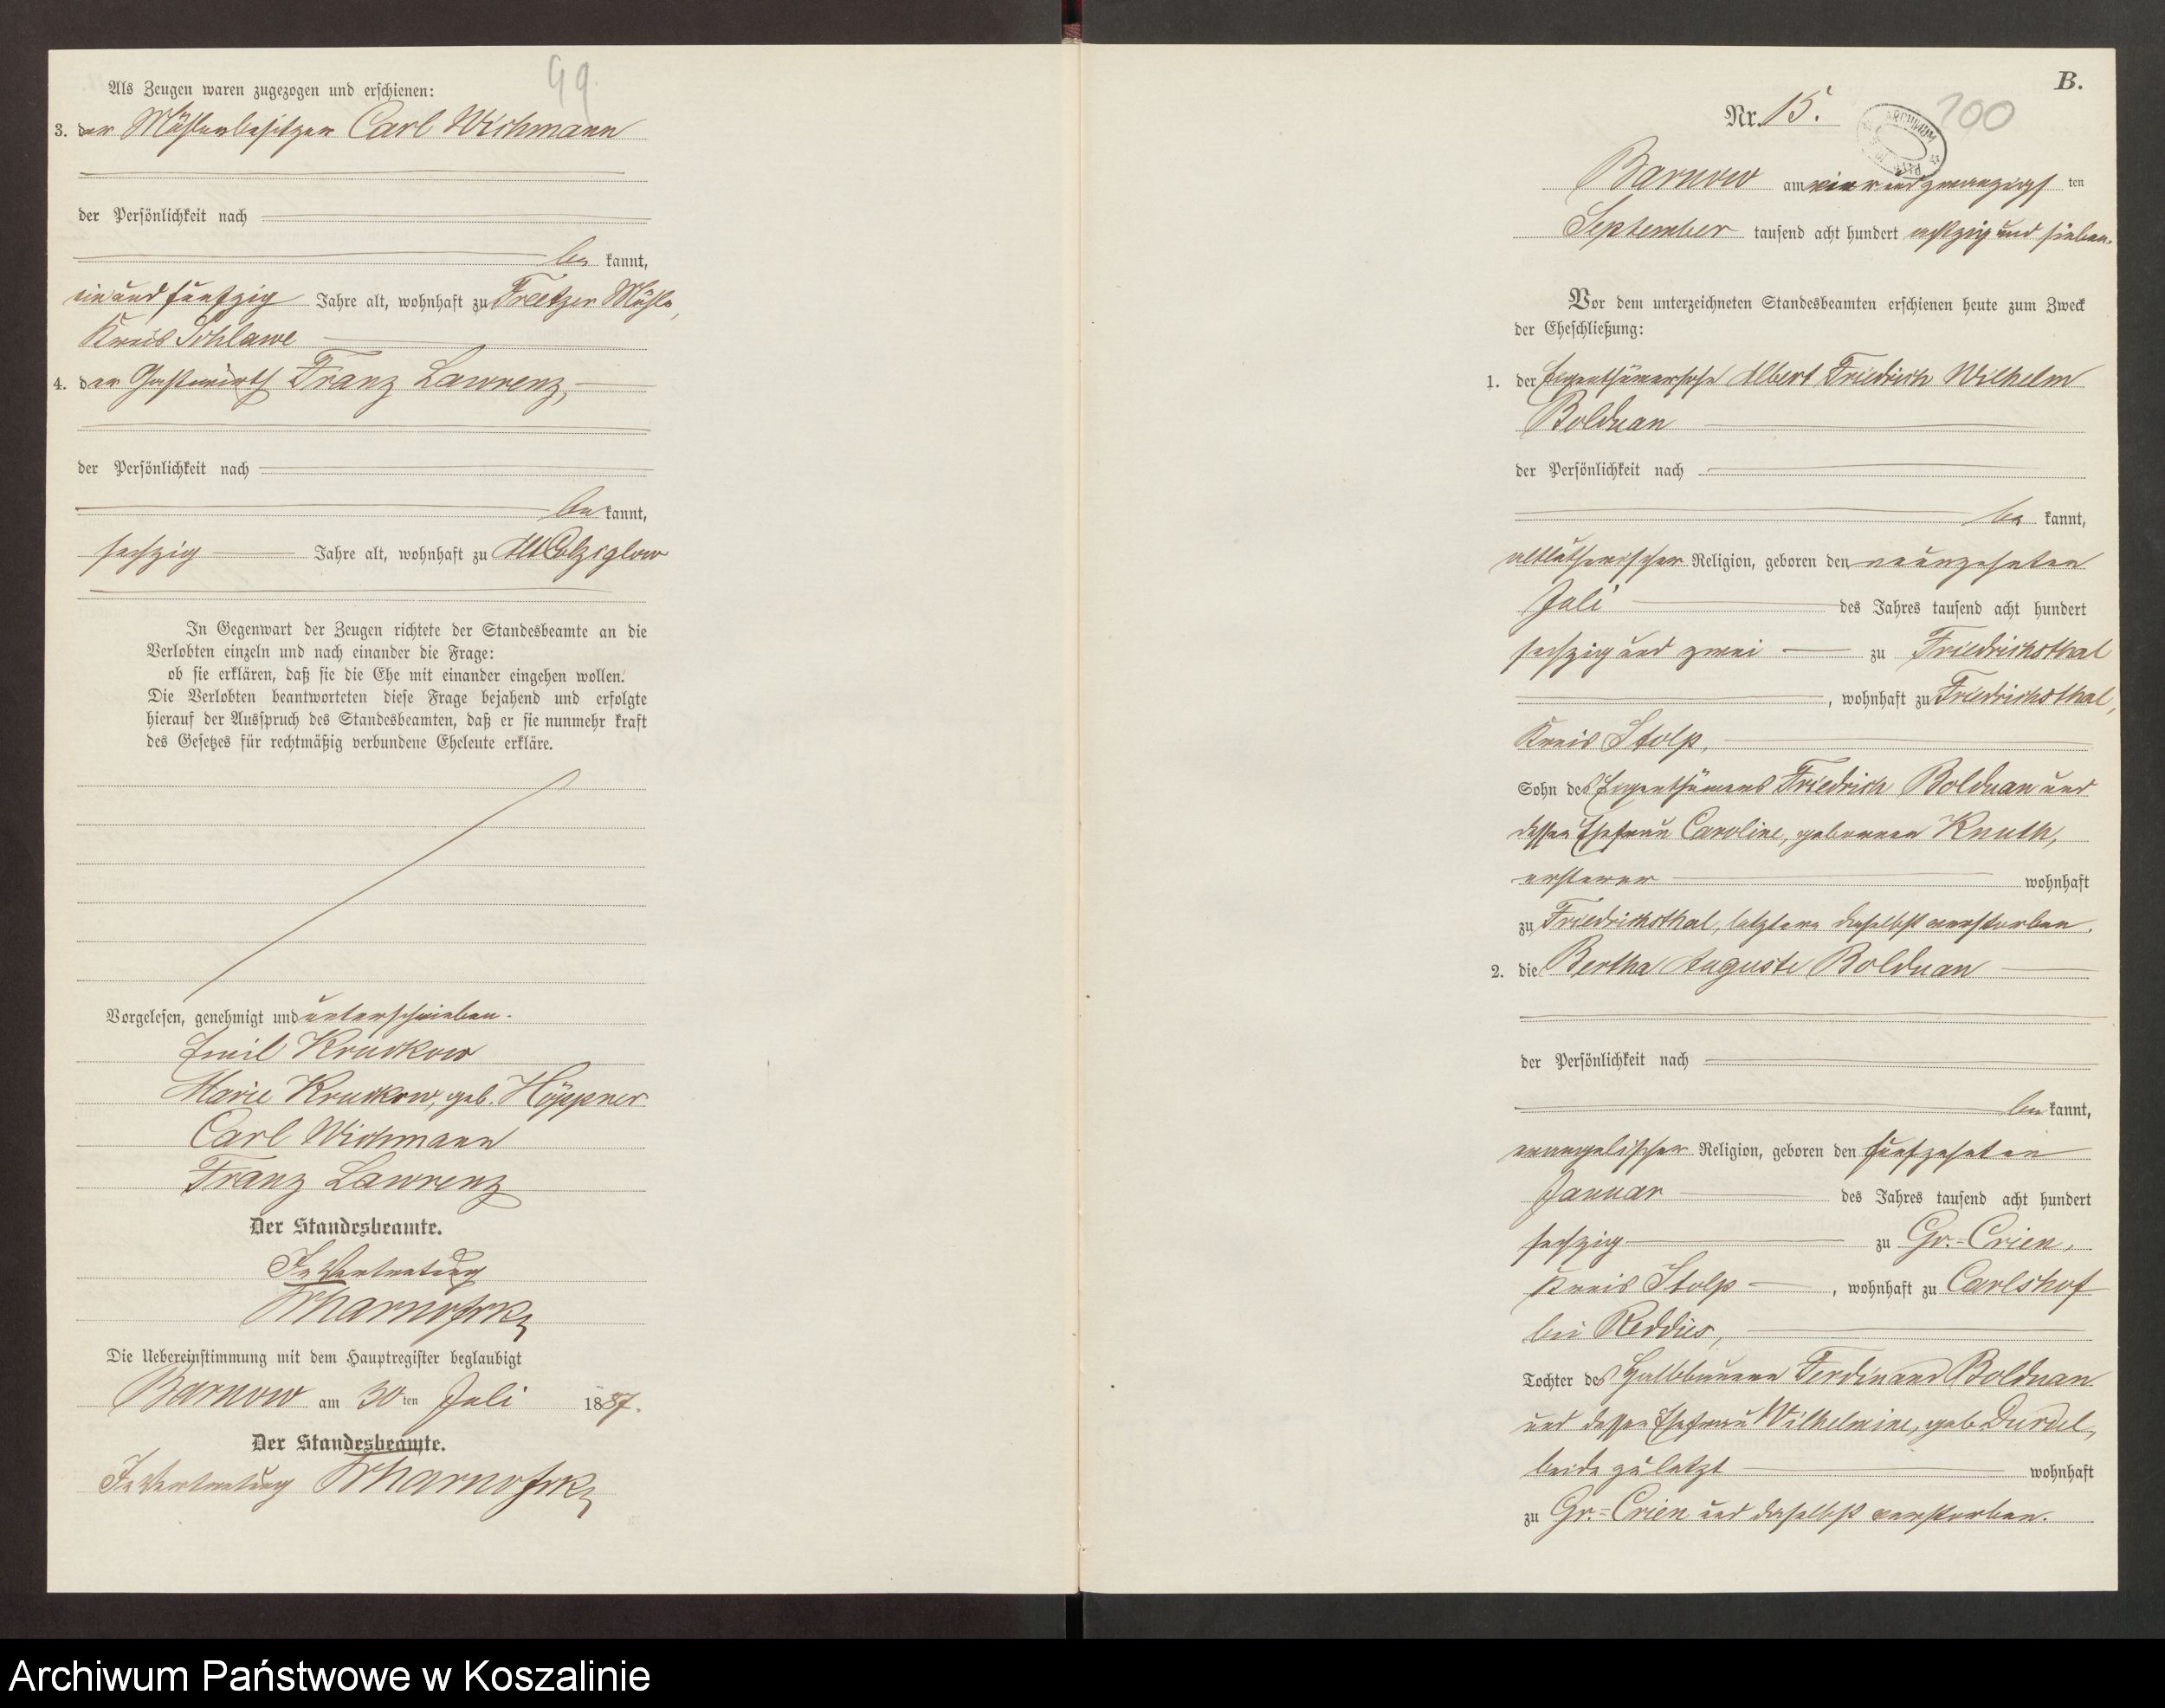 99
Als Zeugen waren zugezogen und erschienen:
3. der Mühlenbesitzer Carl Wichmann
der Persönlichkeit nach
be kannt,
ein und fünfzig Jahre alt, wohnhaft zu Treetzer Mühle,
Kreis Schlawe
4. der Gastwirth Franz Lawrenz,
der Persönlichkeit nach
be kannt,
sechzig Jahre alt, wohnhaft zu Alt Colziglow
In Gegenwart der Zeugen richtete der Standesbeamte an die
Verlobten einzeln und nach einander die Frage:
ob sie erklären, daß sie die Ehe mit einander eingehen wollen.
Die Verlobten beantworteten diese Frage bejahend und erfolgte
hierauf der Ausspruch des Standesbeamten, daß er sie nunmehr kraft
des Gesetzes für rechtmäßig verbundene Eheleute erkläre.
Vorgelesen, genehmigt und unterschrieben.
Emil Kruckow
Marie Kruckow, geb. Höppner
Carl Wichmann
Franz Lawrenz
Der Standesbeamte.
In Vertretung
Die Uebereinstimmung mit dem Hauptregister beglaubigt
Barnow am 30 ten Juli 1887.
Der Standesbeamte.
In Vertretung
B.
Nr. 15.
100
ARCHIWUM
Barnow am vier und zwanzigs ten
September tausend acht hundert achtzig und sieben.
Vor dem unterzeichneten Standesbeamten erschienen heute zum Zweck
der Eheschließung:
1. der Eigenthümersohn Albert Friedrich Wilhelm
Bolduan
der Persönlichkeit nach
be kannt,
altlutherischer Religion, geboren den neunzehnten
Juli des Jahres tausend acht hundert
sechzig und zwei zu Friedrichsthal
, wohnhaft zu Friedrichsthal,
Kreis Stolp,
Sohn des Eigenthümers Friedrich Bolduan und
dessen Ehefrau Caroline, geborenen Knuth,
ersterer wohnhaft
zu Friedrichsthal, letztere daselbst verstorben.
2. die Bertha Auguste Bolduan
der Persönlichkeit nach
be kannt,
evangelischer Religion, geboren den fünfzehnten
Januar des Jahres tausend acht hundert
sechzig zu Gr.=Crien,
Kreis Stolp , wohnhaft zu Carlshof
bei Reddies,
Tochter des Halbbauern Ferdinand Bolduan
und dessen Ehefrau Wilhelmine, geb. Durdel,
beide zuletzt wohnhaft
zu Gr.=Crien und daselbst verstorben.
Archiwum Państwowe w Koszalinie